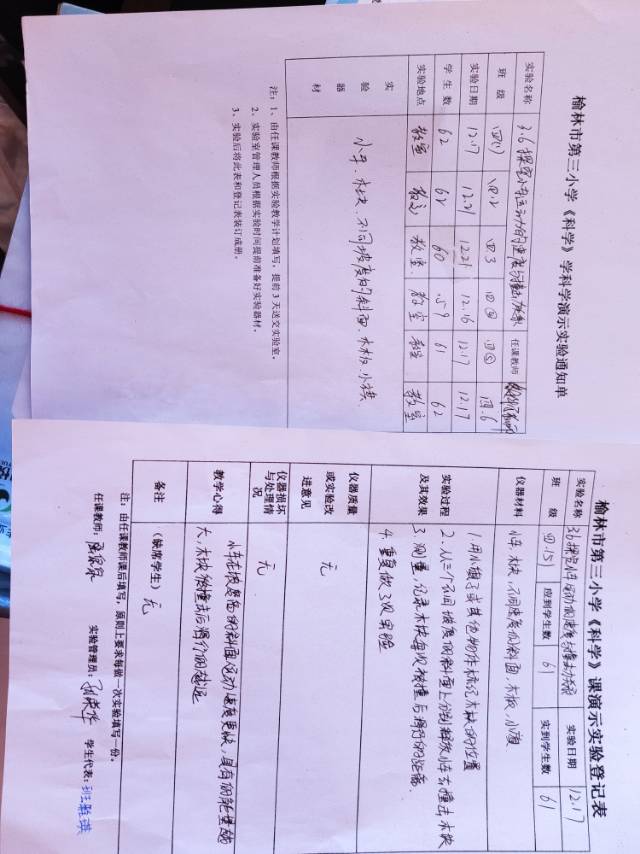 榆林市第三小学《科学》学科学演示实验通知单
实验名称 3.6探究小车运动的速度与撞击效果 任课教师
班级 四(1) 四.2 四3 四④ 四⑤ 四.6
实验日期 12.17 12.21 12.21 12.16 12.17 12.17
学生数 62 62 60 59 61 62
实验地点 教室 教室 教室 教室 教室 教室
实验器材 小车、木块、不同坡度的斜面、木板、小旗
注：1、由任课教师根据实验教学计划填写，提前3天送交实验室。
2、实验室管理人员根据实验时间提前准备好实验器材。
3、实验后将此表和登记表装订成册。
榆林市第三小学《科学》课演示实验登记表
实验名称 3.6探究小车运动的速度与撞击效果 实验日期 12.17
班级 四.(5) 应到学生数 61 实到学生数 61
仪器材料 小车、木块、不同坡度的斜面、木板、小旗
实验过程及其效果
1.用小旗子或其他物作标记木块的位置
2.从三个不同坡度的斜面上分别释放小车去撞击木块
3.测量,记录木块每次被撞后滑行的距离.
4.重复做3次实验
仪器质量或实验改进意见 无
仪器损坏与处理情况 无
教学心得 小车在坡度高的斜面运动速度更快,具有的能量越
大,木块被撞击后滑行的越远
备注 (缺席学生) 无
注：由任课教师课后填写，原则上要求每做一次实验填写一份。
任课教师: 实验管理员: 学生代表: